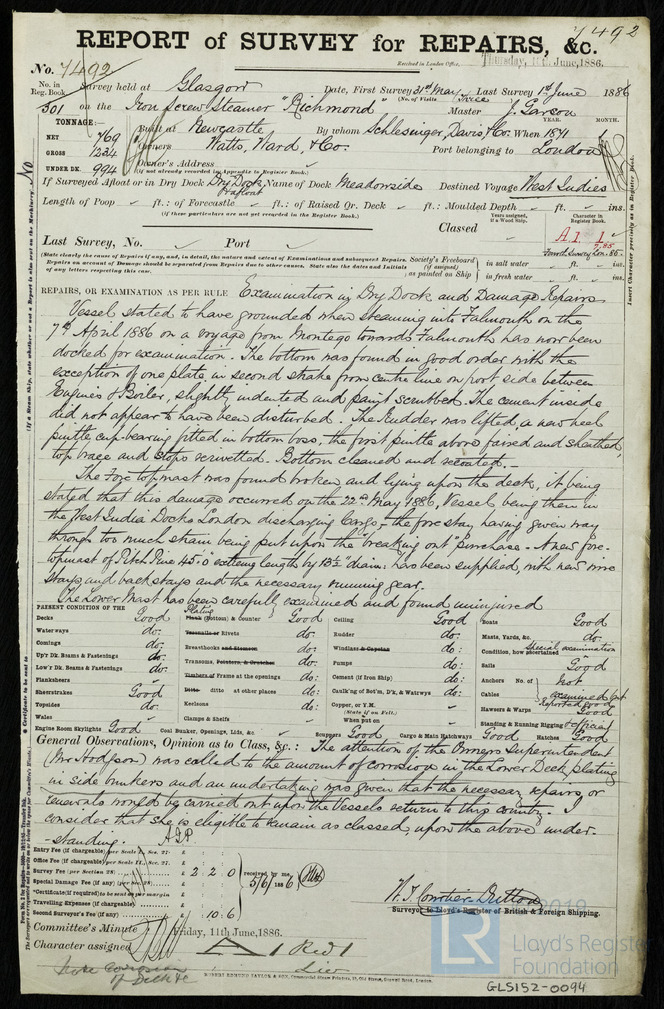 7492
REPORT of SURVEY for REPAIRS, &c.
Received in London Office, Thursday, 11th June, 1886.
No. 7492
No. in Reg. Book. Survey held at Glasgow Date, First Survey 31st May Last Survey 1st June 1886
(No. of Visits Three)
501 on the Iron Screw Steamer "Richmond" Master J. Garson
TONNAGE: Built at Newcastle By whom Schlesinger, Davis & Co. When 1871
YEAR. MONTH.
NET 769
GROSS 1234 Owners Watts, Ward, & Co. Port belonging to London
UNDER DK. 994 Owner's Address
(if not already recorded in Appendix to Register Book.)
If Surveyed Afloat or in Dry Dock Dry Dock & afloat Name of Dock Meadowside Destined Voyage West Indies
Length of Poop ft.: of Forecastle ft.: of Raised Qr. Deck ft.: Moulded Depth ft. ins.
(if these particulars are not yet recorded in the Register Book.)
Years assigned, if a Wood Ship. Character in Register Book.
Classed A1 1
Last Survey, No. Port
(State clearly the cause of Repairs if any, and, in detail, the nature and extent of Examinations and subsequent Repairs. Repairs on account of Damage should be separated from Repairs due to other causes. State also the dates and Initials of any letters respecting this case.
Society's Freeboard (if assigned) as painted on Ship
in salt water ft. ins.
in fresh water ft. ins.
REPAIRS, OR EXAMINATION AS PER RULE Examination in Dry Dock and Damage Repairs
Vessel stated to have grounded when steaming into Falmouth on the
7th April 1886 on a voyage from Montego towards Falmouth has now been
docked for examination. The bottom was found in good order with the
exception of one plate in second strake from centre line on port side between
Engines & Boiler, slightly indented and paint scrubbed. The cement inside
did not appear to have been disturbed. The Rudder was lifted, a new heel
pintle cup-bearing fitted in bottom boss, the first pintle above faired and sheathed,
top brace and stops rerivetted. Bottom cleaned and recoated.
The Fore topmast was found broken and lying upon the deck, it being
stated that this damage occurred on the 22nd May 1886, Vessel being then in
the West India Docks London discharging Cargo, the fore stay having given way
through too much strain being put upon the "breaking out" purchase. A new fore-
topmast of Pitch Pine 45'.0" extreme length by 13½ diam: has been supplied, with new wire
stays and backstays and the necessary running gear.
The Lower Mast has been carefully examined and found uninjured
PRESENT CONDITION OF THE
Decks Good Plank (Bottom) & Counter Plating Good Ceiling Good Boats Good
Waterways do: Treenails or Rivets do: Rudder do: Masts, Yards, &c. do:
Comings do: Breasthooks and Stemson do: Windlass & Capstan do: Condition, how ascertained special examination
Up'r Dk. Beams & Fastenings do: Transoms, Pointers, & Crutches do: Pumps do: Sails Good
Low'r Dk. Beams & Fastenings do: Timbers of Frame at the openings do: Cement (if Iron Ship) do: Anchors No. of Not
Planksheers Ditto ditto at other places do: Caulk'ng of Bot'm, D'k, & Watrwys do: Cables examined but
Sheerstrakes Good Keelsons do: Copper, or Y.M. (State if on Felt.) Reported good
Topsides do: Clamps & Shelfs When put on Hawsers & Warps Good
Wales Standing & Running Rigging
Engine Room Skylights Good Coal Bunker, Openings, Lids, &c Scuppers Good Cargo & Main Hatchways Good Hatches Good
General Observations, Opinion as to Class, &c.: The attention of the Owners Superintendent
(Mr Hodgson) was called to the amount of corrosion in the Lower Deck plating
in side bunkers and an undertaking was given that the necessary repairs or
renewals would be carried out upon the Vessels return to this country. I
consider that she is eligible to remain as classed, upon the above under-
standing.
Entry Fee (if chargeable) per Scale I., Sec. 27: £
Office Fee (if chargeable) per Scale II., Sec. 27: £
Survey Fee (per Section 28) £ 2 : 2 : 0 received by me,
Special Damage Fee (if any) (per Sec. 28) £ 5/6/1886
*Certificate (if required) to be sent as per margin
Travelling Expenses (if chargeable) £
Second Surveyor's Fee (if any) 10 : 6
Surveyor to Lloyd's Register of British & Foreign Shipping.
Committee's Minute Friday, 11th June, 1886.
Character assigned A 1 Red 1
Note Corrosion of Deck &c
ROBERT EDMUND TAYLOR & SON, Commercial Steam Printers, 19, Old Street, Goswell Road, London.
2019
LR Lloyd's Register Foundation
GLS152-0094